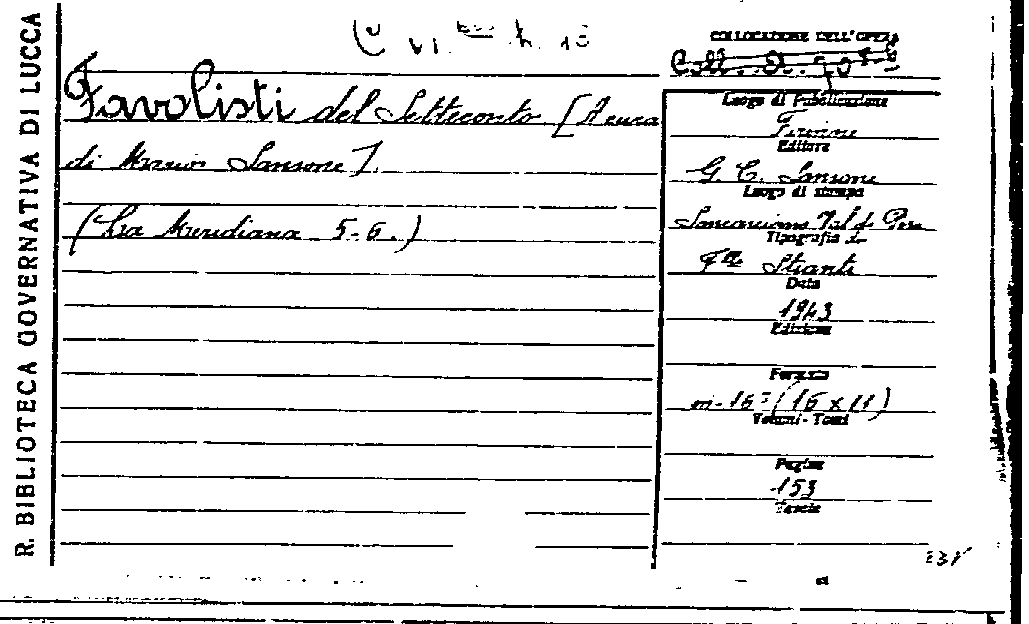 R. BIBLIOTECA GOVERNATIVA DI LUCCA
COLLOCAZIONE DELL'OPERA
Favolisti del Settecento [A cura
di Mario Sansone].
(La Meridiana 5-6.)
Luogo di Pubblicazione
Firenze
Editore
G. C. Sansoni
Luogo di stampa
Sancasciano Val di Pesa
Tipografia
F.lli Stianti
Data
1943
Edizione
Formato
in-16° (16 x 11)
Volumi - Tomi
Pagine
153
Tavole